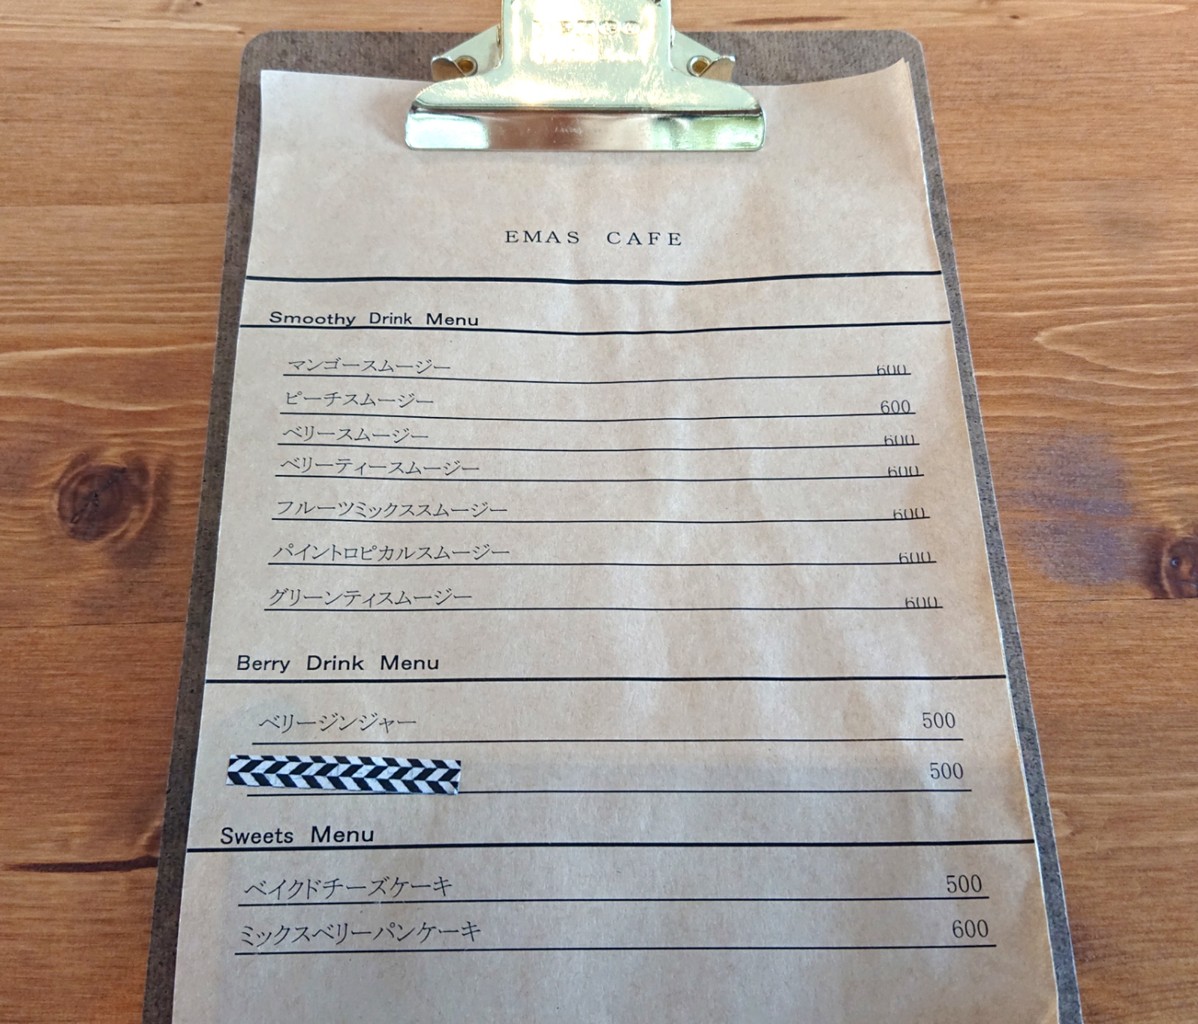 EMAS CAFE
Smoothy Drink Menu
マンゴースムージー 600
ピーチスムージー 600
ベリースムージー 600
ベリーティースムージー 600
フルーツミックススムージー 600
パイントロピカルスムージー 600
グリーンティスムージー 600
Berry Drink Menu
ベリージンジャー 500
500
Sweets Menu
ベイクドチーズケーキ 500
ミックスベリーパンケーキ 600